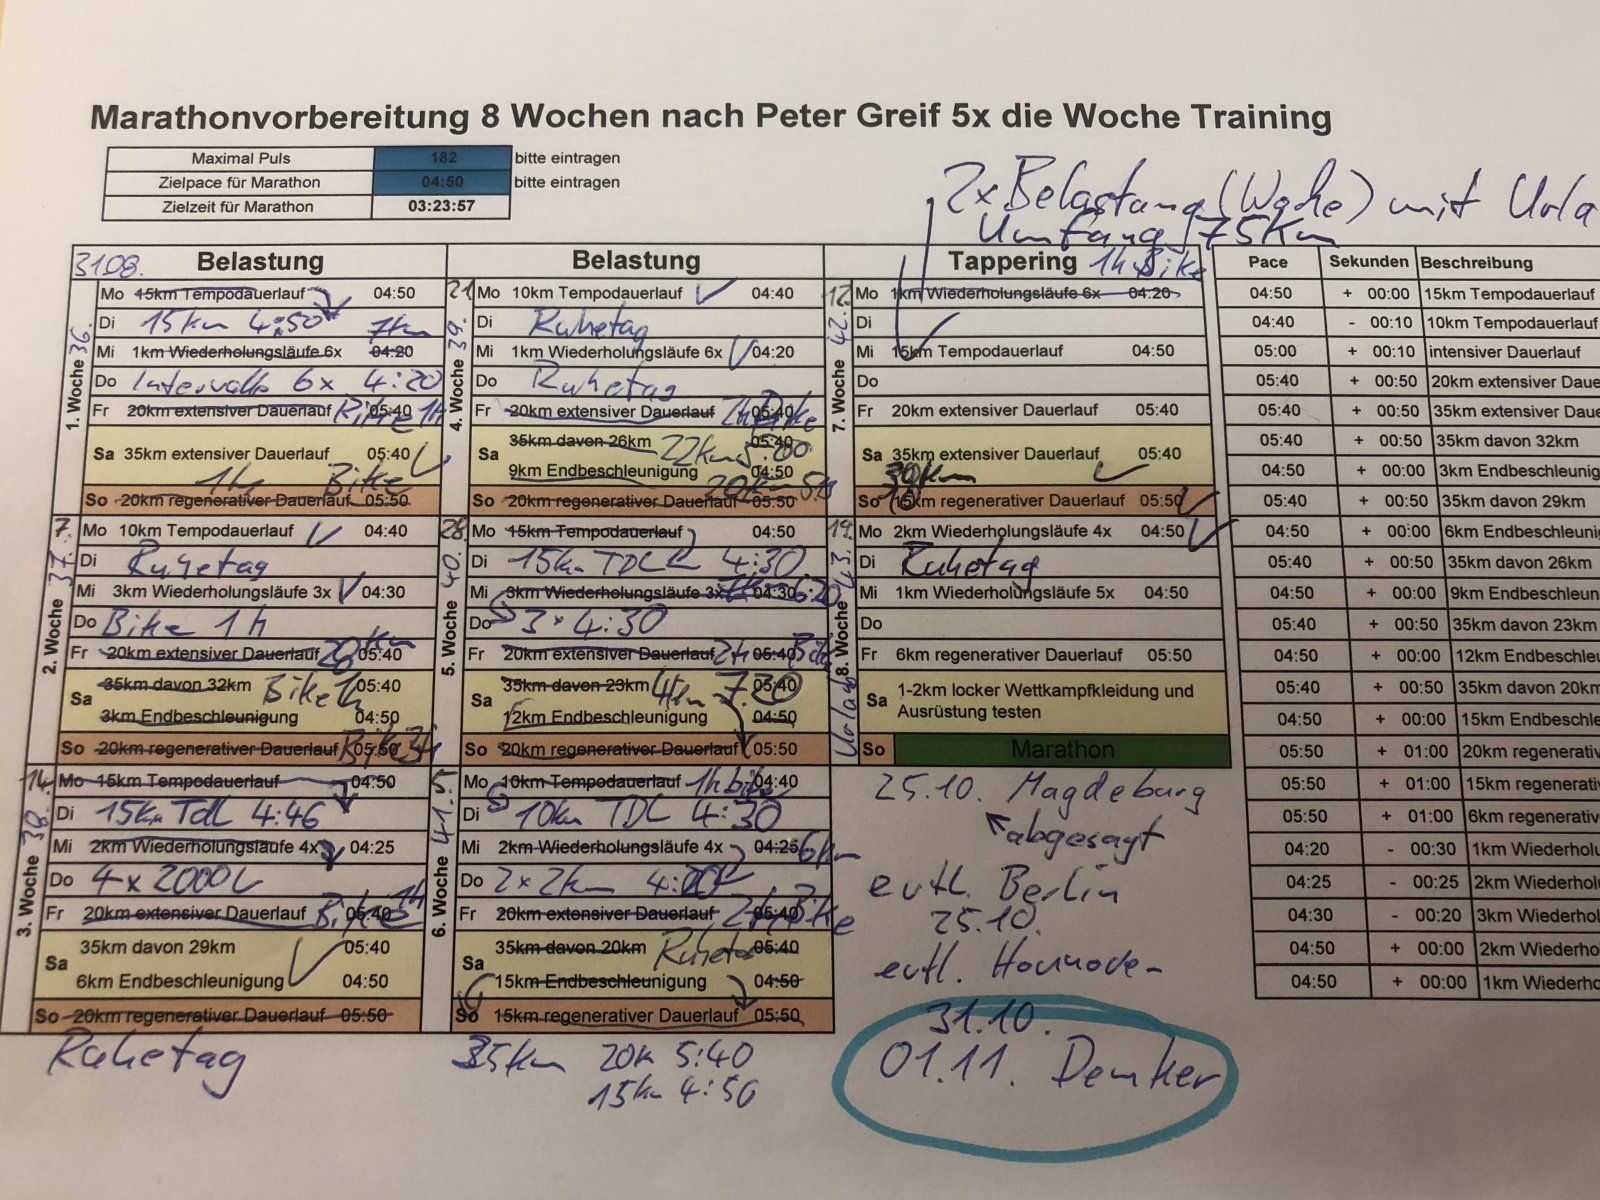 Marathonvorbereitung 8 Wochen nach Peter Greif 5x die Woche Training
Maximal Puls 182 bitte eintragen
Zielpace für Marathon 04:50 bitte eintragen
Zielzeit für Marathon 03:23:57
2x Belastung (Woche) mit Urla
Umfang 75km
31.08. Belastung
1. Woche 36.
Mo 15km Tempodauerlauf 04:50
Di 15km 4:50 7km
Mi 1km Wiederholungsläufe 6x 04:20
Do Intervalle 6x 4:20
Fr 20km extensiver Dauerlauf 05:40 Bike 1h
Sa 35km extensiver Dauerlauf 05:40
1h Bike
So 20km regenerativer Dauerlauf 05:50
2. Woche 37. 7.
Mo 10km Tempodauerlauf 04:40
Di Ruhetag
Mi 3km Wiederholungsläufe 3x 04:30
Do Bike 1h
Fr 20km extensiver Dauerlauf 20km 05:40
Sa 35km davon 32km Bike 1h 05:40
3km Endbeschleunigung 04:50
So 20km regenerativer Dauerlauf 05:50
3. Woche 38. 14.
Mo 15km Tempodauerlauf 04:50
Di 15km TdL 4:46
Mi 2km Wiederholungsläufe 4x 04:25
Do 4 x 2000
Fr 20km extensiver Dauerlauf Bike 1h 05:40
Sa 35km davon 29km 05:40
6km Endbeschleunigung 04:50
So 20km regenerativer Dauerlauf 05:50
Ruhetag
Belastung
4. Woche 39. 21.
Mo 10km Tempodauerlauf 04:40
Di Ruhetag
Mi 1km Wiederholungsläufe 6x 04:20
Do Ruhetag
Fr 20km extensiver Dauerlauf Bike 05:40
Sa 35km davon 26km 22km 5:00 05:40
9km Endbeschleunigung 04:50
So 20km regenerativer Dauerlauf 20km 05:50
5. Woche 40. 28.
Mo 15km Tempodauerlauf 04:50
Di 15km TDL 4:30
Mi 3km Wiederholungsläufe 3x 04:30 6:20
Do 3 x 4:30
Fr 20km extensiver Dauerlauf 2h Bike 05:40
Sa 35km davon 23km 7:30 05:40
12km Endbeschleunigung 04:50
So 20km regenerativer Dauerlauf 05:50
6. Woche 41. 5.
Mo 10km Tempodauerlauf 1h bike 04:40
Di 10km TDL 4:30
Mi 2km Wiederholungsläufe 4x 04:25 6km
Do 2x2km
Fr 20km extensiver Dauerlauf 2h Bike 05:40
Sa 35km davon 20km 05:40
15km Endbeschleunigung 04:50
So 15km regenerativer Dauerlauf 05:50
35km 20k 5:40
15km 4:50
Tappering 1h Bike
7. Woche 42. 12.
Mo 1km Wiederholungsläufe 6x 04:20
Di
Mi 15km Tempodauerlauf 04:50
Do
Fr 20km extensiver Dauerlauf 05:40
Sa 35km extensiver Dauerlauf 05:40
30km
So 15km regenerativer Dauerlauf 05:50
8. Woche 43. 19. Urlaub
Mo 2km Wiederholungsläufe 4x 04:50
Di Ruhetag
Mi 1km Wiederholungsläufe 5x 04:50
Do
Fr 6km regenerativer Dauerlauf 05:50
Sa 1-2km locker Wettkampfkleidung und
Ausrüstung testen
So Marathon
25.10. Magdeburg
abgesagt
evtl. Berlin
25.10.
evtl.
31.10.
01.11. Demker
Pace Sekunden Beschreibung
04:50 + 00:00 15km Tempodauerlauf
04:40 - 00:10 10km Tempodauerlauf
05:00 + 00:10 intensiver Dauerlauf
05:40 + 00:50 20km extensiver Daue
05:40 + 00:50 35km extensiver Daue
05:40 + 00:50 35km davon 32km
04:50 + 00:00 3km Endbeschleunig
05:40 + 00:50 35km davon 29km
04:50 + 00:00 6km Endbeschleunig
05:40 + 00:50 35km davon 26km
04:50 + 00:00 9km Endbeschleun
05:40 + 00:50 35km davon 23km
04:50 + 00:00 12km Endbeschleu
05:40 + 00:50 35km davon 20k
04:50 + 00:00 15km Endbeschle
05:50 + 01:00 20km regenerativ
05:50 + 01:00 15km regenerativ
05:50 + 01:00 6km regenerativ
04:20 - 00:30 1km Wiederholu
04:25 - 00:25 2km Wiederhol
04:30 - 00:20 3km Wiederhol
04:50 + 00:00 2km Wiederho
04:50 + 00:00 1km Wiederho